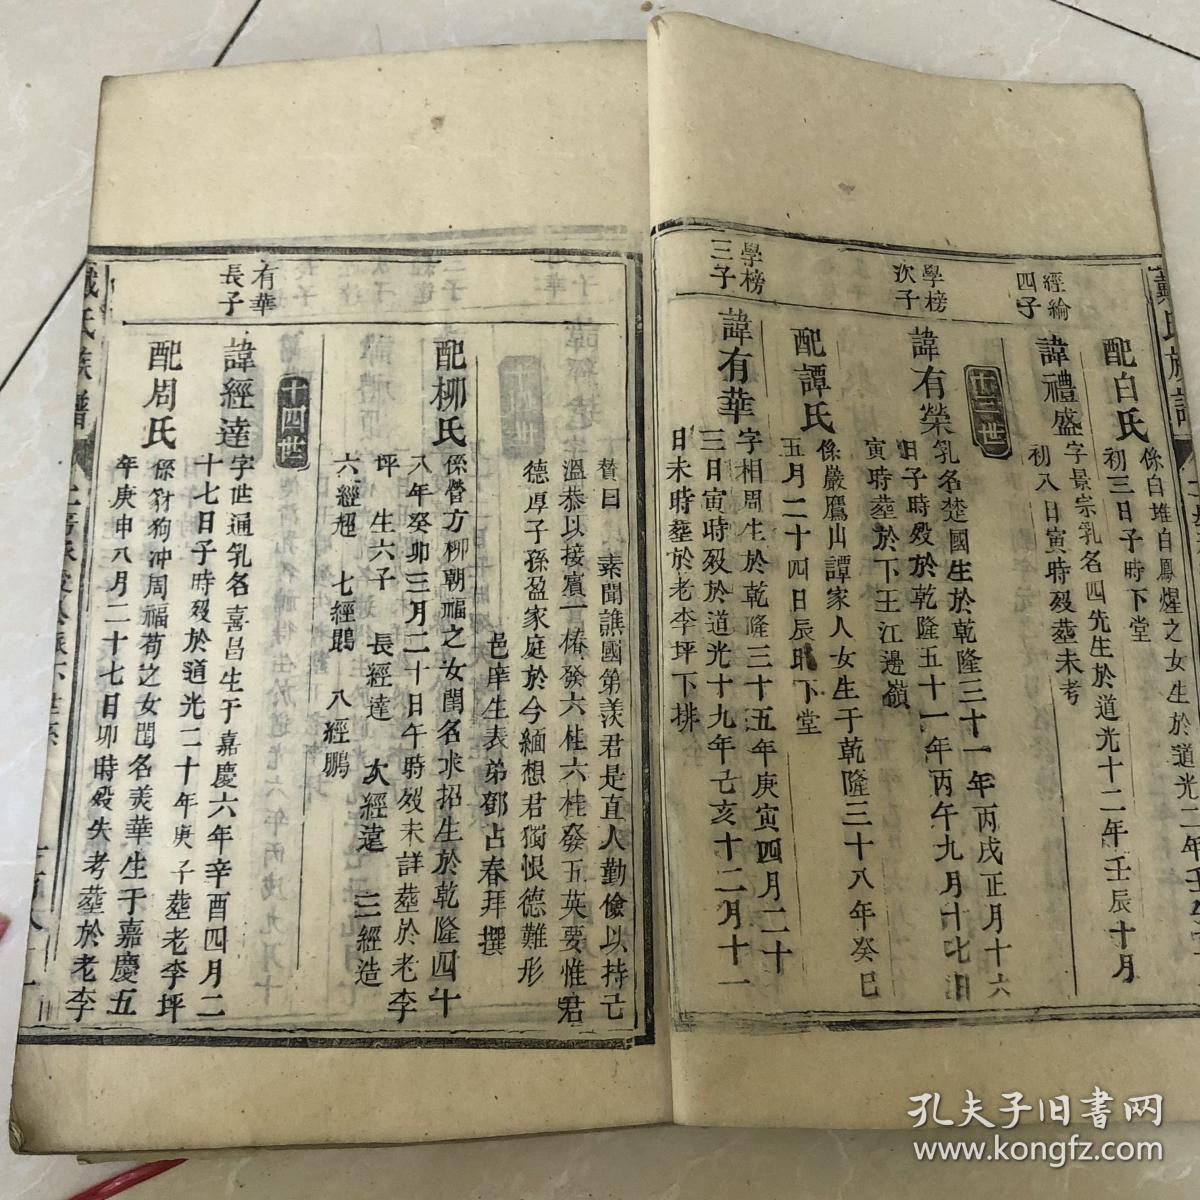 戴氏族譜
配白氏
係白堆白鳳煋之女生於道光二年壬
初三日子時下堂
經綸
四子
諱禮盛
字景宗乳名四先生於道光十二年壬辰十月
初八日寅時歿塟未考
廿三世
學榜
次子
諱有榮
乳名楚國生於乾隆三十一年丙戌正月十六
日子時歿於乾隆五十一年丙午九月十七日
寅時塟於下王江邊嶺
配譚氏
係嚴鷹山譚家人女生于乾隆三十八年癸巳
五月二十四日辰時下堂
學榜
三子
諱有華
字相周生於乾隆三十五年庚寅四月二十
三日寅時歿於道光十九年己亥十二月十一
日未時塟於老李坪下排
贊曰
素聞譙國第羨君是直人勤儉以持己
溫恭以接賓一椿發六桂六桂發五英要惟君
德厚子孫盈家庭於今緬想君獨恨德難形
邑庠生表弟鄧占春拜撰
配柳氏
係營方柳朝福之女閨名求招生於乾隆四十
八年癸卯三月二十日午時歿未詳塟於老李
坪 生六子 長經達 次經遠 三經造
六經超 七經鵾 八經鵬
十四世
有華
長子
諱經達
字世通乳名喜昌生于嘉慶六年辛酉四月二
十七日子時歿於道光二十年庚子塟老李坪
配周氏
係豺狗沖周福荀之女閨名美華生于嘉慶五
年庚申八月二十七日卯時歿失考塟於老李
戴氏族譜
孔夫子旧书网
www.kongfz.com